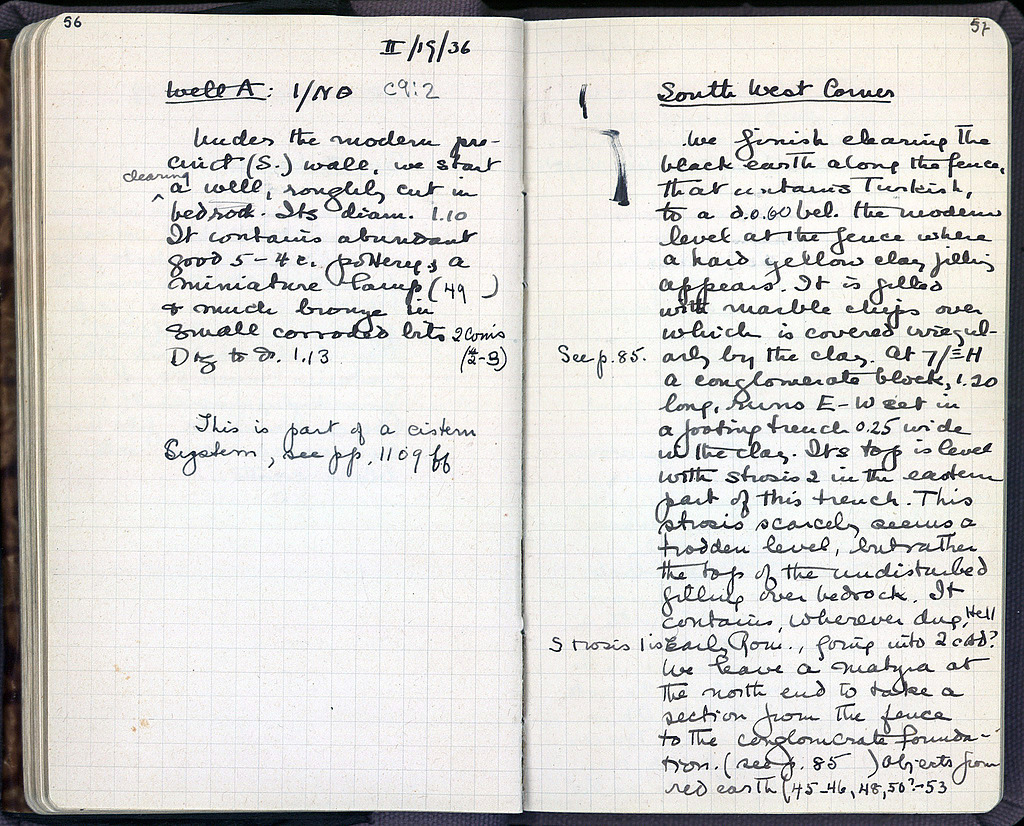 56
II/19/36
Well A: 1/ΝΘ C9:2
Under the modern pre-
cinct (S.) wall, we start
clearing
a well, roughly cut in
bedrock. Its diam. 1.10
It contains abundant
good 5-4 c. pottery, a
miniature lamp (49 )
& much bronze in
small corroded bits 2 coins
Dig to d. 1.13 (#2-3)
This is part of a cistern
System, see pp. 1109 ff
57
South West Corner
We finish clearing the
black earth along the fence,
that contains Turkish,
to a d. 0.60 bel. the modern
level at the fence where
a hard yellow clay filling
appears. It is filled
with marble chips over
which is covered irregul-
See p. 85. arly by the clay. At 7/ΞΗ
a conglomerate block, 1.20
long, runs E-W set in
a footing trench 0.25 wide
in the clay. Its top is level
with strosis 2 in the eastern
part of this trench. This
strosis scarcely seems a
trodden level, but rather
the top of the undisturbed
filling over bedrock. It
contains, wherever dug, Hell
Strosis 1 is Early Rom., going into 2 c AD?
We leave a martyra at
the north end to take a
section from the fence
to the conglomerate founda-
tion. (see p. 85 ) Objects from
red earth (45-46, 48, 50?-53